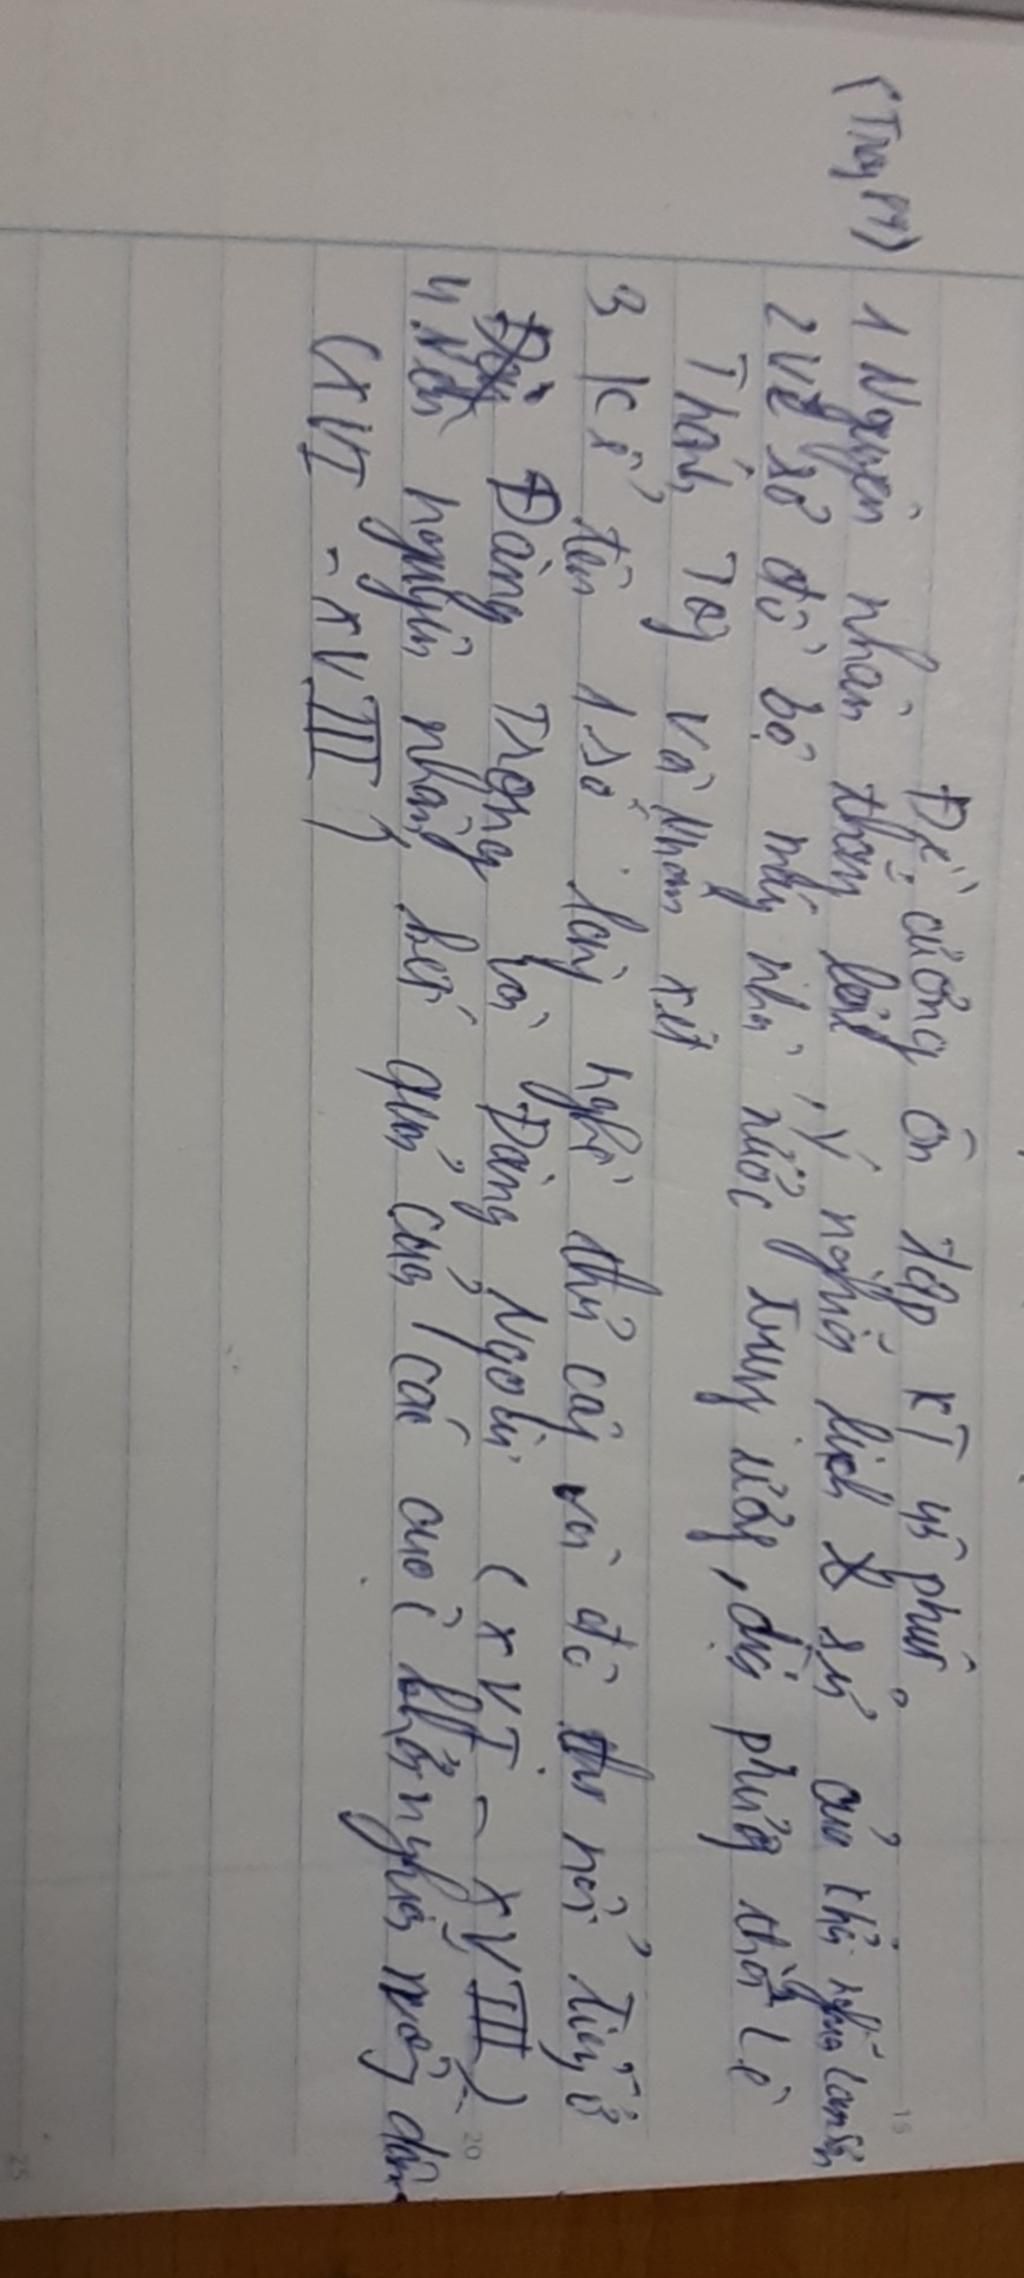 Đề cương ôn tập KT 45 phút
1 Nguyên nhân thắng lợi, ý nghĩa lịch sử của khởi nghĩa Lam Sơn
2 Vẽ sơ đồ bộ máy nhà nước Trung ương, địa phương thời Lê
Thánh Tôg và nhận xét
3 Kể tên 1 số làng nghề thủ côg và đô thị nổi tiếg ở
Đàng Trong và Đàng Ngoài (XVI - XVIII)
4. Nêu nguyên nhân, kết quả của các cuộc khởi nghĩa nôg dân
(XVI - XVIII)